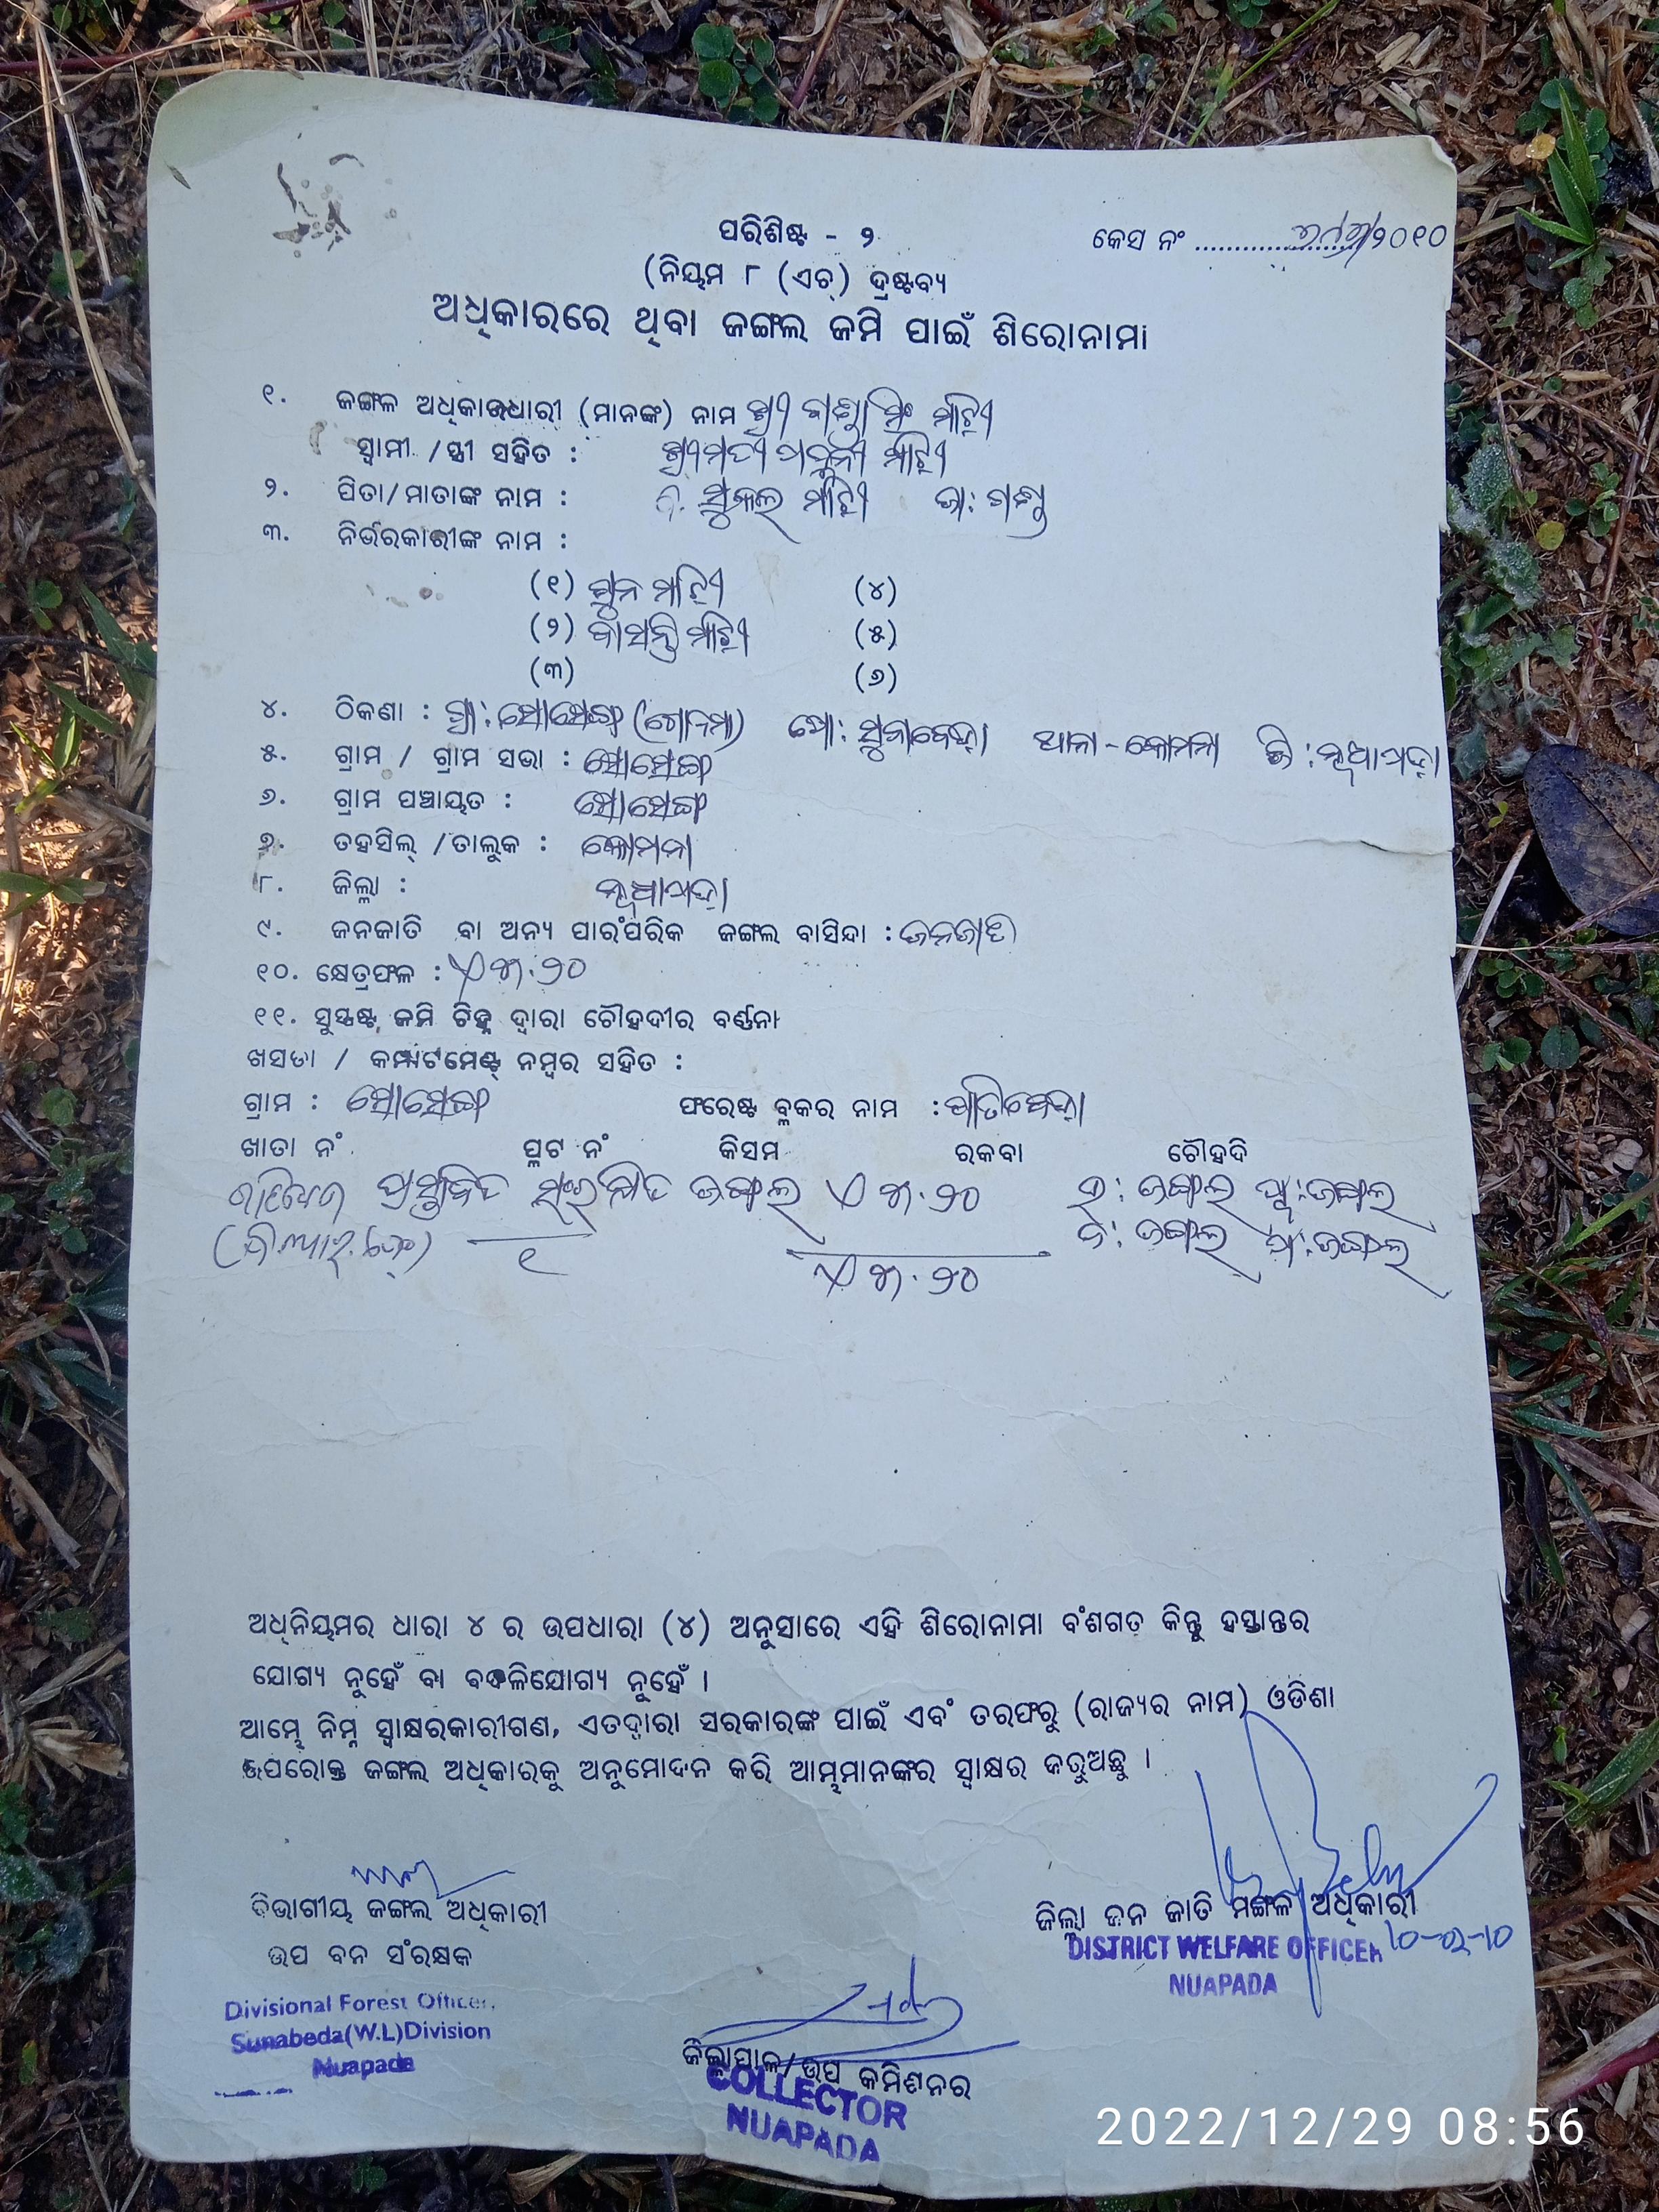 ପରିଶିଷ୍ଟ - ୨
କେସ ନଂ ..................../୨୦୧୦
(ନିୟମ ୮ (ଏଚ୍) ଦ୍ରଷ୍ଟବ୍ୟ
ଅଧିକାରରେ ଥିବା ଜଙ୍ଗଲ ଜମି ପାଇଁ ଶିରୋନାମା
୧. ଜଙ୍ଗଲ ଅଧିକାରଧାରୀ (ମାନଙ୍କ) ନାମ ଶ୍ରୀ ମାଝୀ
ସ୍ୱାମୀ / ସ୍ତ୍ରୀ ସହିତ : ଶ୍ରୀମତୀ ମାଝୀ
୨. ପିତା/ମାତାଙ୍କ ନାମ : ମାଝୀ ଜା: ଗଣ୍ଡ
୩. ନିର୍ଭରକାରୀଙ୍କ ନାମ :
(୧) ମାଝୀ (୪)
(୨) ବାସନ୍ତି ମାଝୀ (୫)
(୩) (୬)
୪. ଠିକଣା : ଗ୍ରା: ସୋସେଙ୍ଗ ପୋ: ସୁନାବେଡ଼ା ଥାନା - କୋମନା ଜି : ନୂଆପଡ଼ା
୫. ଗ୍ରାମ / ଗ୍ରାମ ସଭା : ସୋସେଙ୍ଗ
୬. ଗ୍ରାମ ପଞ୍ଚାୟତ : ସୋସେଙ୍ଗ
୭. ତହସିଲ୍ /ତାଲୁକ : କୋମନା
୮. ଜିଲ୍ଲା : ନୂଆପଡ଼ା
୯. ଜନଜାତି ବା ଅନ୍ୟ ପାରଂପରିକ ଜଙ୍ଗଲ ବାସିନ୍ଦା : ଜନଜାତି
୧୦. କ୍ଷେତ୍ରଫଳ : ଏ ୩.୨୦
୧୧. ସୁସ୍ପଷ୍ଟ ଜମି ଚିହ୍ନ ଦ୍ୱାରା ଚୌହଦୀର ବର୍ଣ୍ଣନା
ଖସଡା / କମ୍ପାର୍ଟମେଣ୍ଟ ନମ୍ବର ସହିତ :
ଗ୍ରାମ : ସୋସେଙ୍ଗ ଫରେଷ୍ଟ ବ୍ଲକର ନାମ :
ଖାତା ନଂ ପ୍ଲଟ ନଂ କିସମ ରକବା ଚୌହଦି
ପ୍ରସ୍ତାବିତ ସଂରକ୍ଷିତ ଜଙ୍ଗଲ ଏ ୩.୨୦ ଉ: ଜଙ୍ଗଲ ପୂ: ଜଙ୍ଗଲ
୧ ଦ: ଜଙ୍ଗଲ ପ: ଜଙ୍ଗଲ
ଏ ୩.୨୦
ଅଧିନିୟମର ଧାରା ୪ ର ଉପଧାରା (୪) ଅନୁସାରେ ଏହି ଶିରୋନାମା ବଂଶଗତ କିନ୍ତୁ ହସ୍ତାନ୍ତର
ଯୋଗ୍ୟ ନୁହେଁ ବା ବଦଳିଯୋଗ୍ୟ ନୁହେଁ ।
ଆମ୍ଭେ ନିମ୍ନ ସ୍ୱାକ୍ଷରକାରୀଗଣ, ଏତଦ୍ୱାରା ସରକାରଙ୍କ ପାଇଁ ଏବଂ ତରଫରୁ (ରାଜ୍ୟର ନାମ) ଓଡିଶା
ଉପରୋକ୍ତ ଜଙ୍ଗଲ ଅଧିକାରକୁ ଅନୁମୋଦନ କରି ଆମ୍ଭମାନଙ୍କର ସ୍ୱାକ୍ଷର କରୁଅଛୁ ।
ବିଭାଗୀୟ ଜଙ୍ଗଲ ଅଧିକାରୀ
ଉପ ବନ ସଂରକ୍ଷକ
Divisional Forest Officer,
Sunabeda(W.L)Division
Nuapada
ଜିଲ୍ଲା ଜନ ଜାତି ମଙ୍ଗଳ ଅଧିକାରୀ
DISTRICT WELFARE OFFICER
NUAPADA
ଜିଲ୍ଲାପାଳ/ଉପ କମିଶନର
COLLECTOR
NUAPADA
2022/12/29 08:56